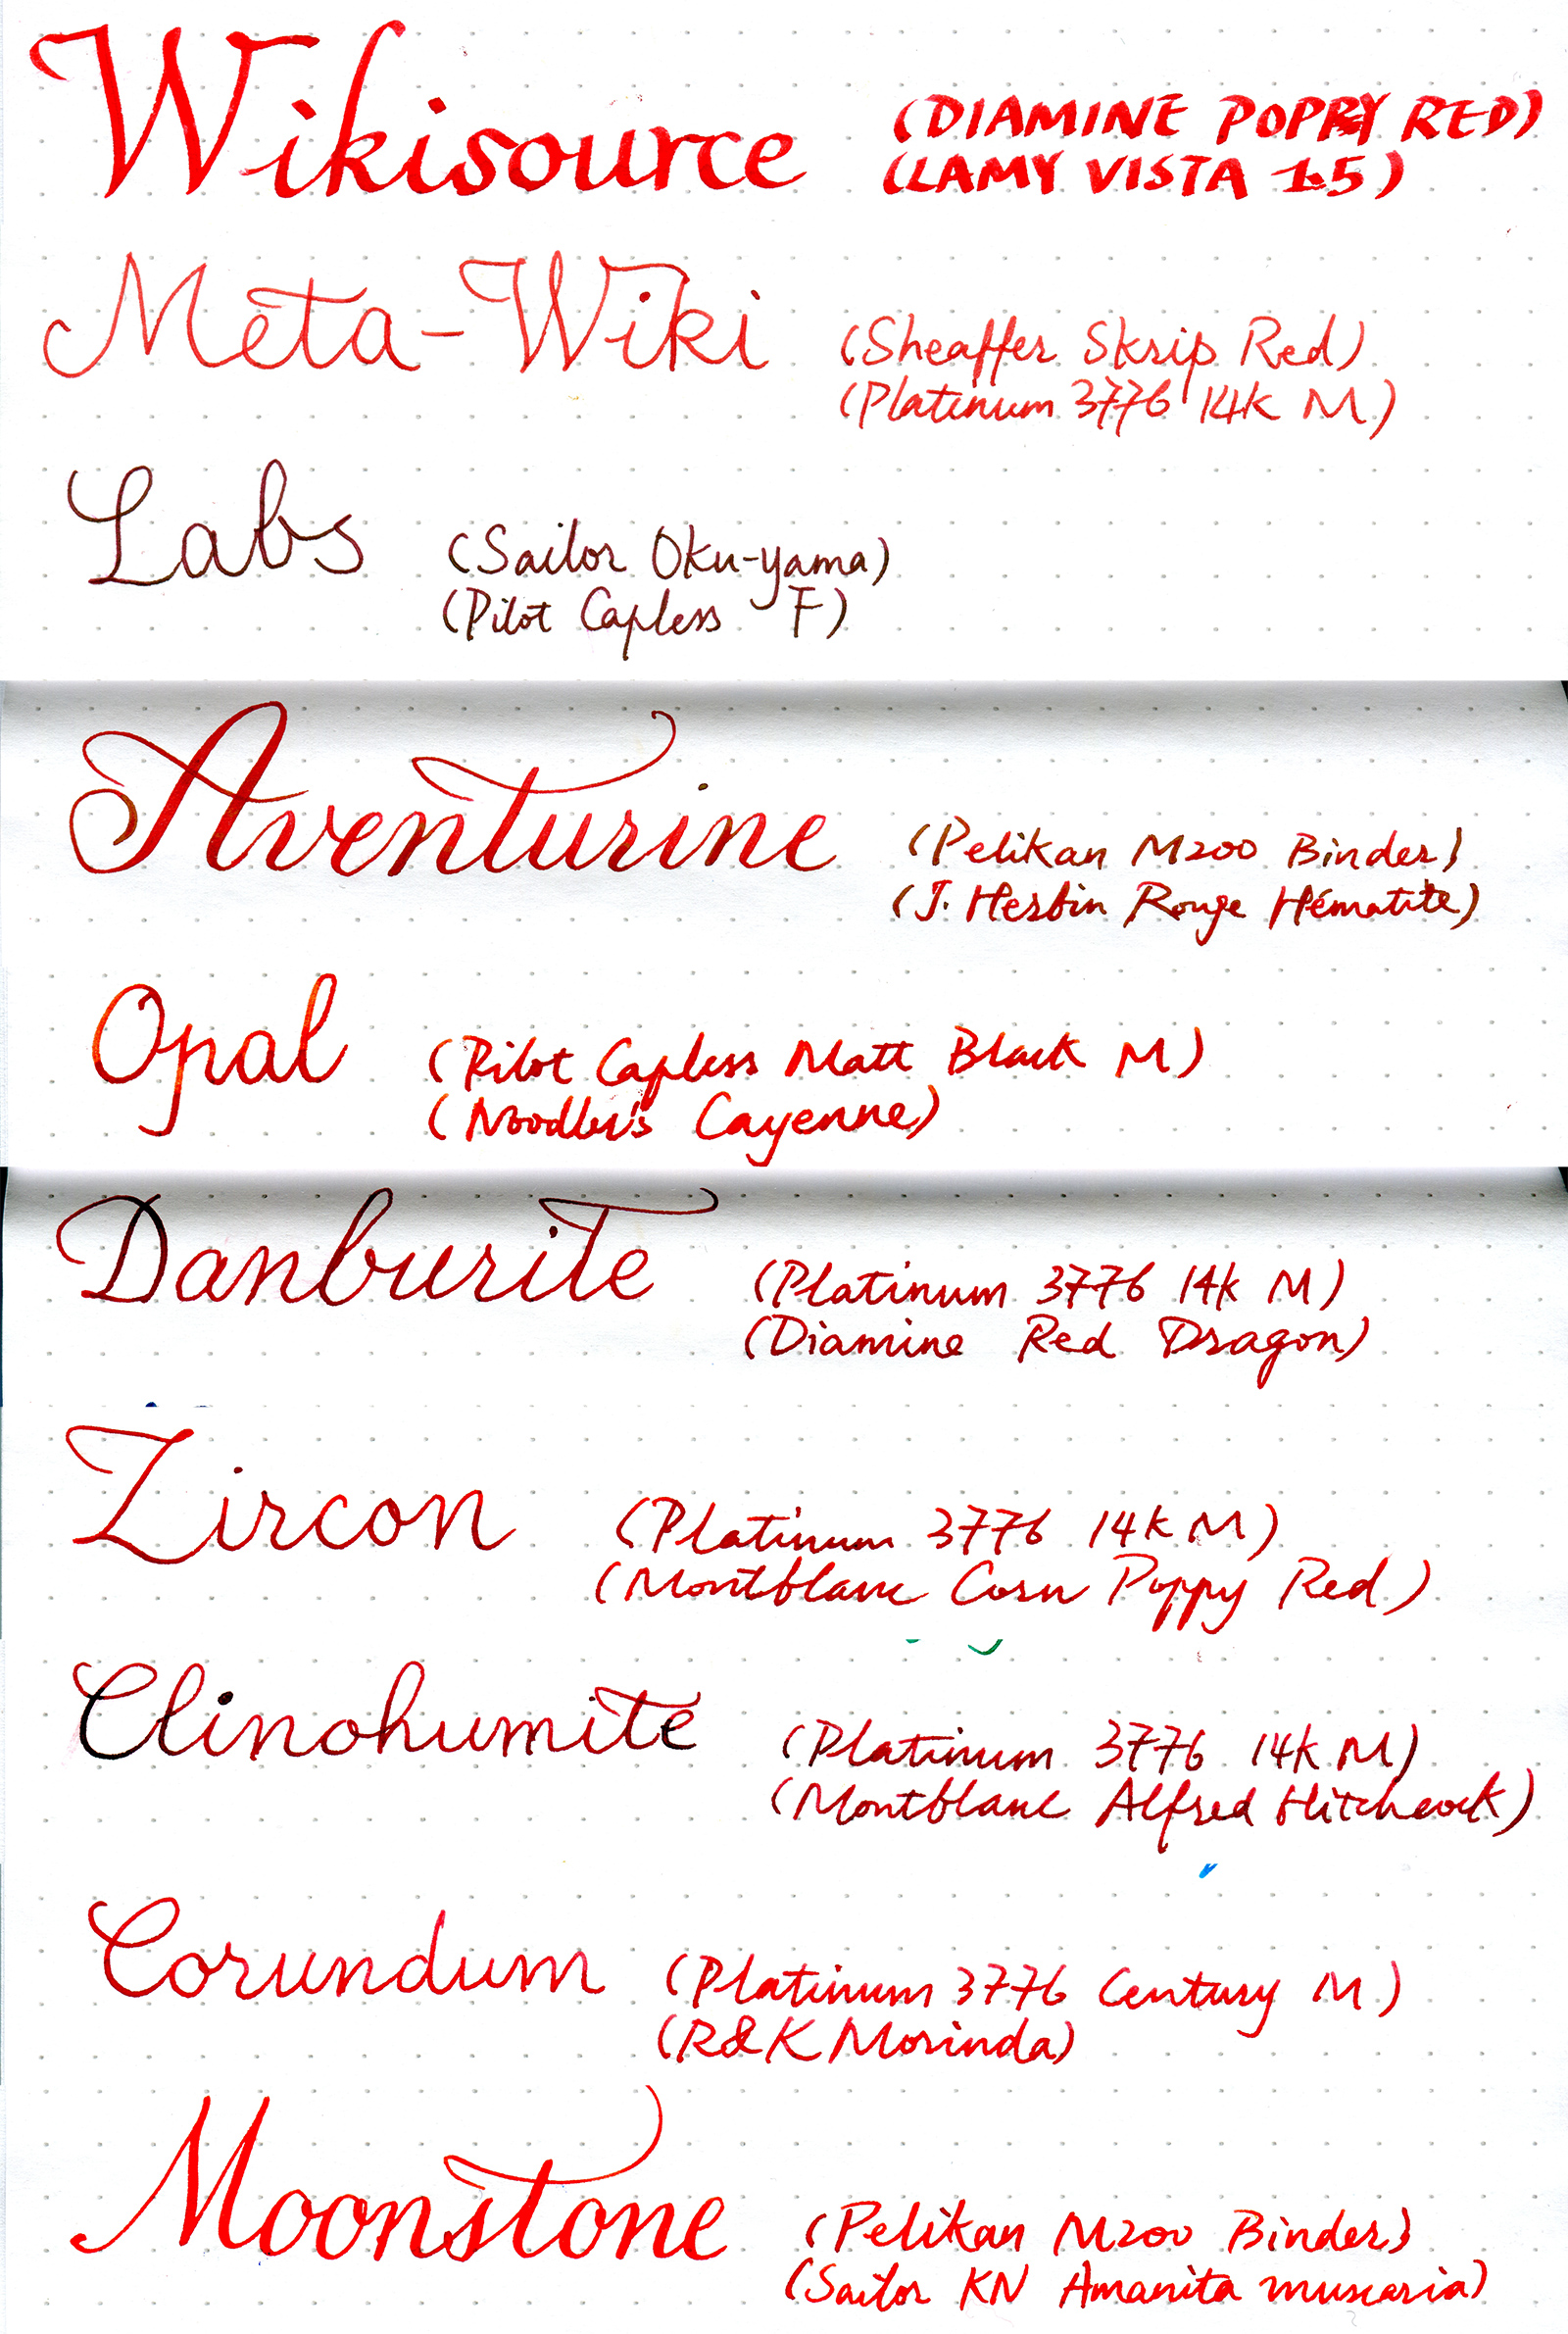 Wikisource
(DIAMINE POPPY RED)
(LAMY VISTA 1.5)
Meta-Wiki
(Sheaffer Skrip Red)
(Platinum 3776 14K M)
Labs
(Sailor Oku-yama)
(Pilot Capless F)
Aventurine
(Pelikan M200 Binder)
(J. Herbin Rouge Hématite)
Opal
(Pilot Capless Matt Black M)
(Noodler's Cayenne)
Danburite
(Platinum 3776 14k M)
(Diamine Red Dragon)
Zircon
(Platinum 3776 14K M)
(Montblanc Corn Poppy Red)
Clinohumite
(Platinum 3776 14K M)
(Montblanc Alfred Hitchcock)
Corundum
(Platinum 3776 Century M)
(R&K Morinda)
Moonstone
(Pelikan M200 Binder)
(Sailor KN Amanita muscaria)